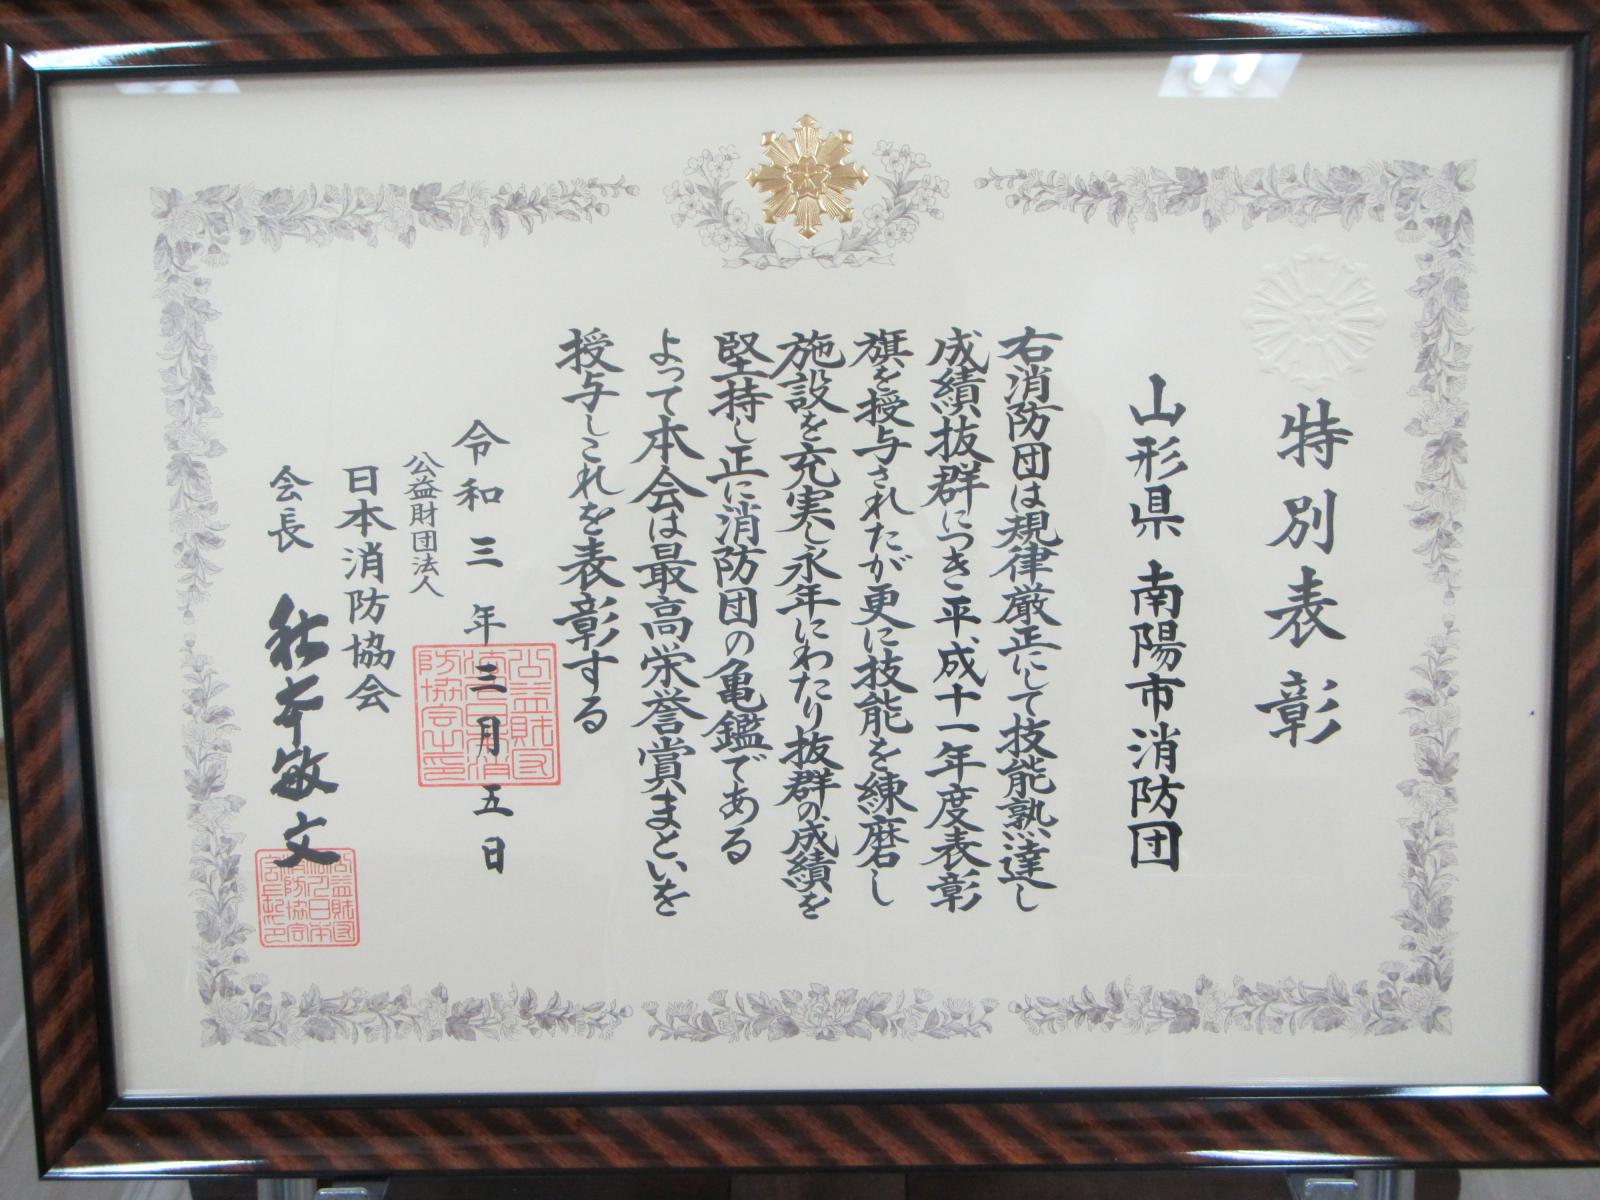 特別表彰
山形県 南陽市消防団
右消防団は規律厳正にして技能熟達し
成績抜群につき平成十一年度表彰
旗を授与されたが更に技能を練磨し
施設を充実し永年にわたり抜群の成績を
堅持し正に消防団の亀鑑である
よって本会は最高栄誉賞まといを
授与しこれを表彰する
令和三年三月五日
公益財団法人
日本消防協会
会長 秋本敏文